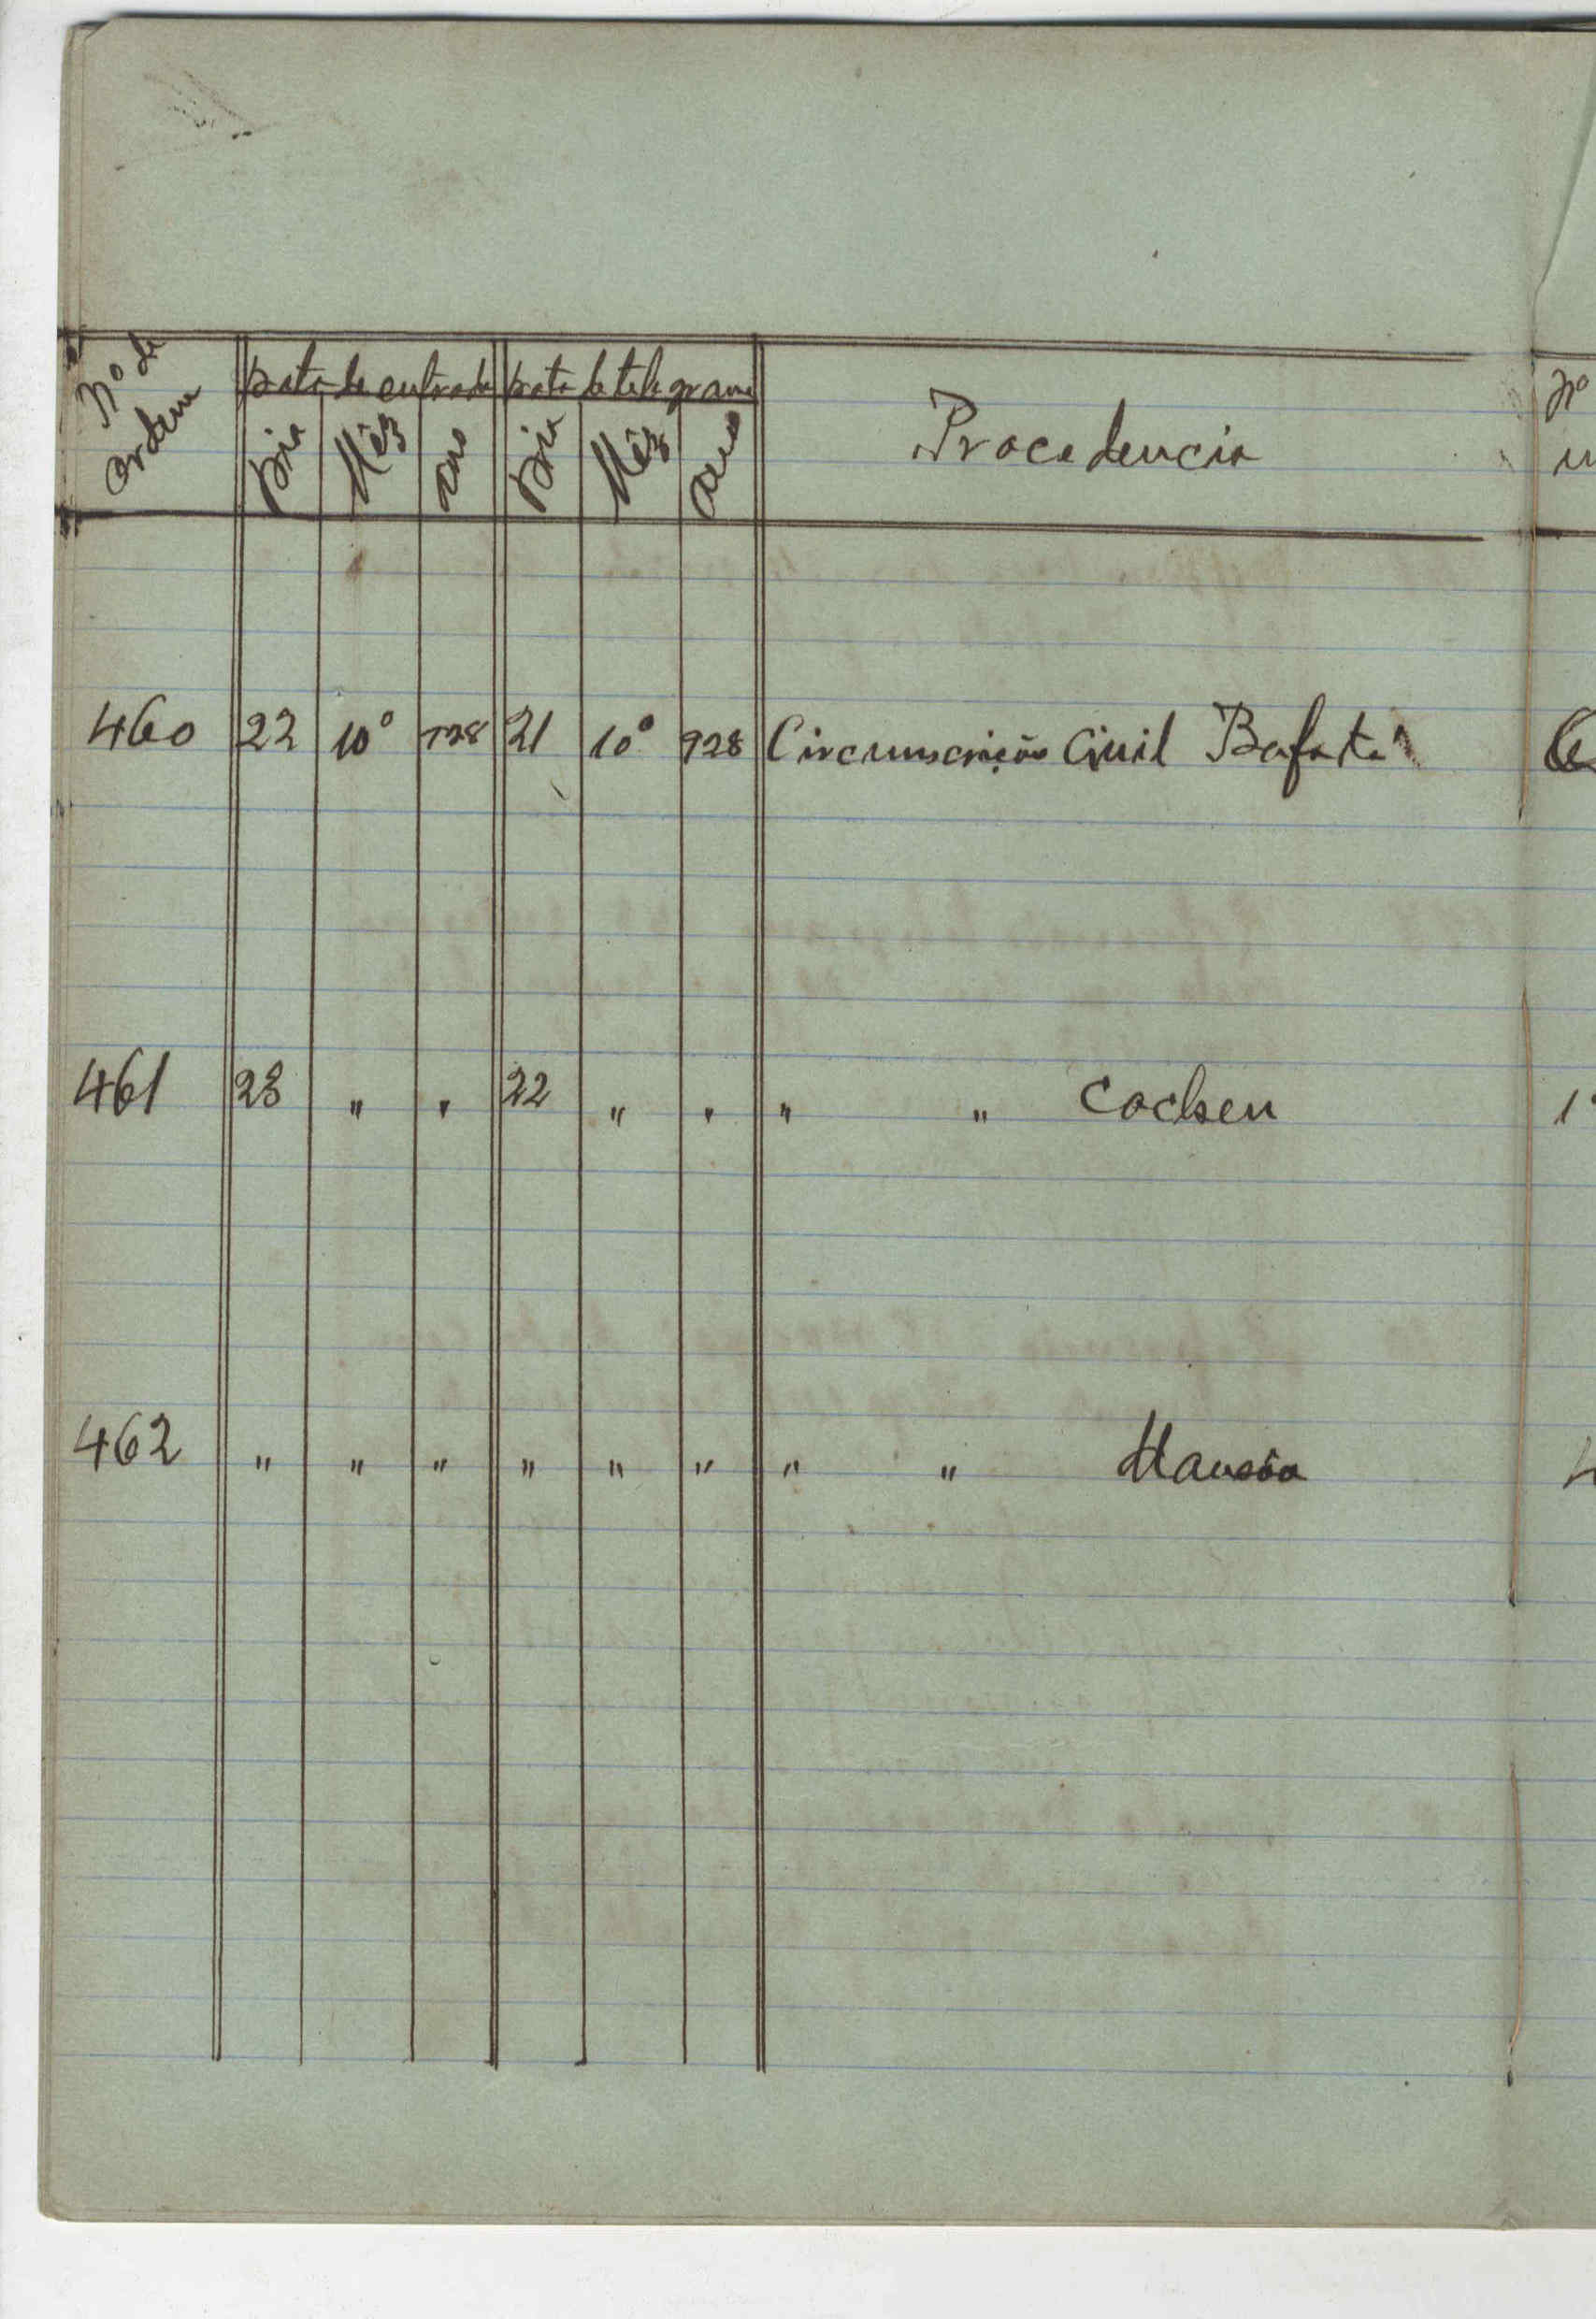 Nº de ordem | Data de entrada | Data de telegrama | Procedencia | Nº
Dia | Mêz | ano | Dia | Mêz | ano
460 | 22 | 10º | 928 | 21 | 10º | 928 | Circunscrição Civil Bafatá
461 | 23 | " | " | 22 | " | " | " " Cacheu
462 | " | " | " | " | " | " | " " Mansôa